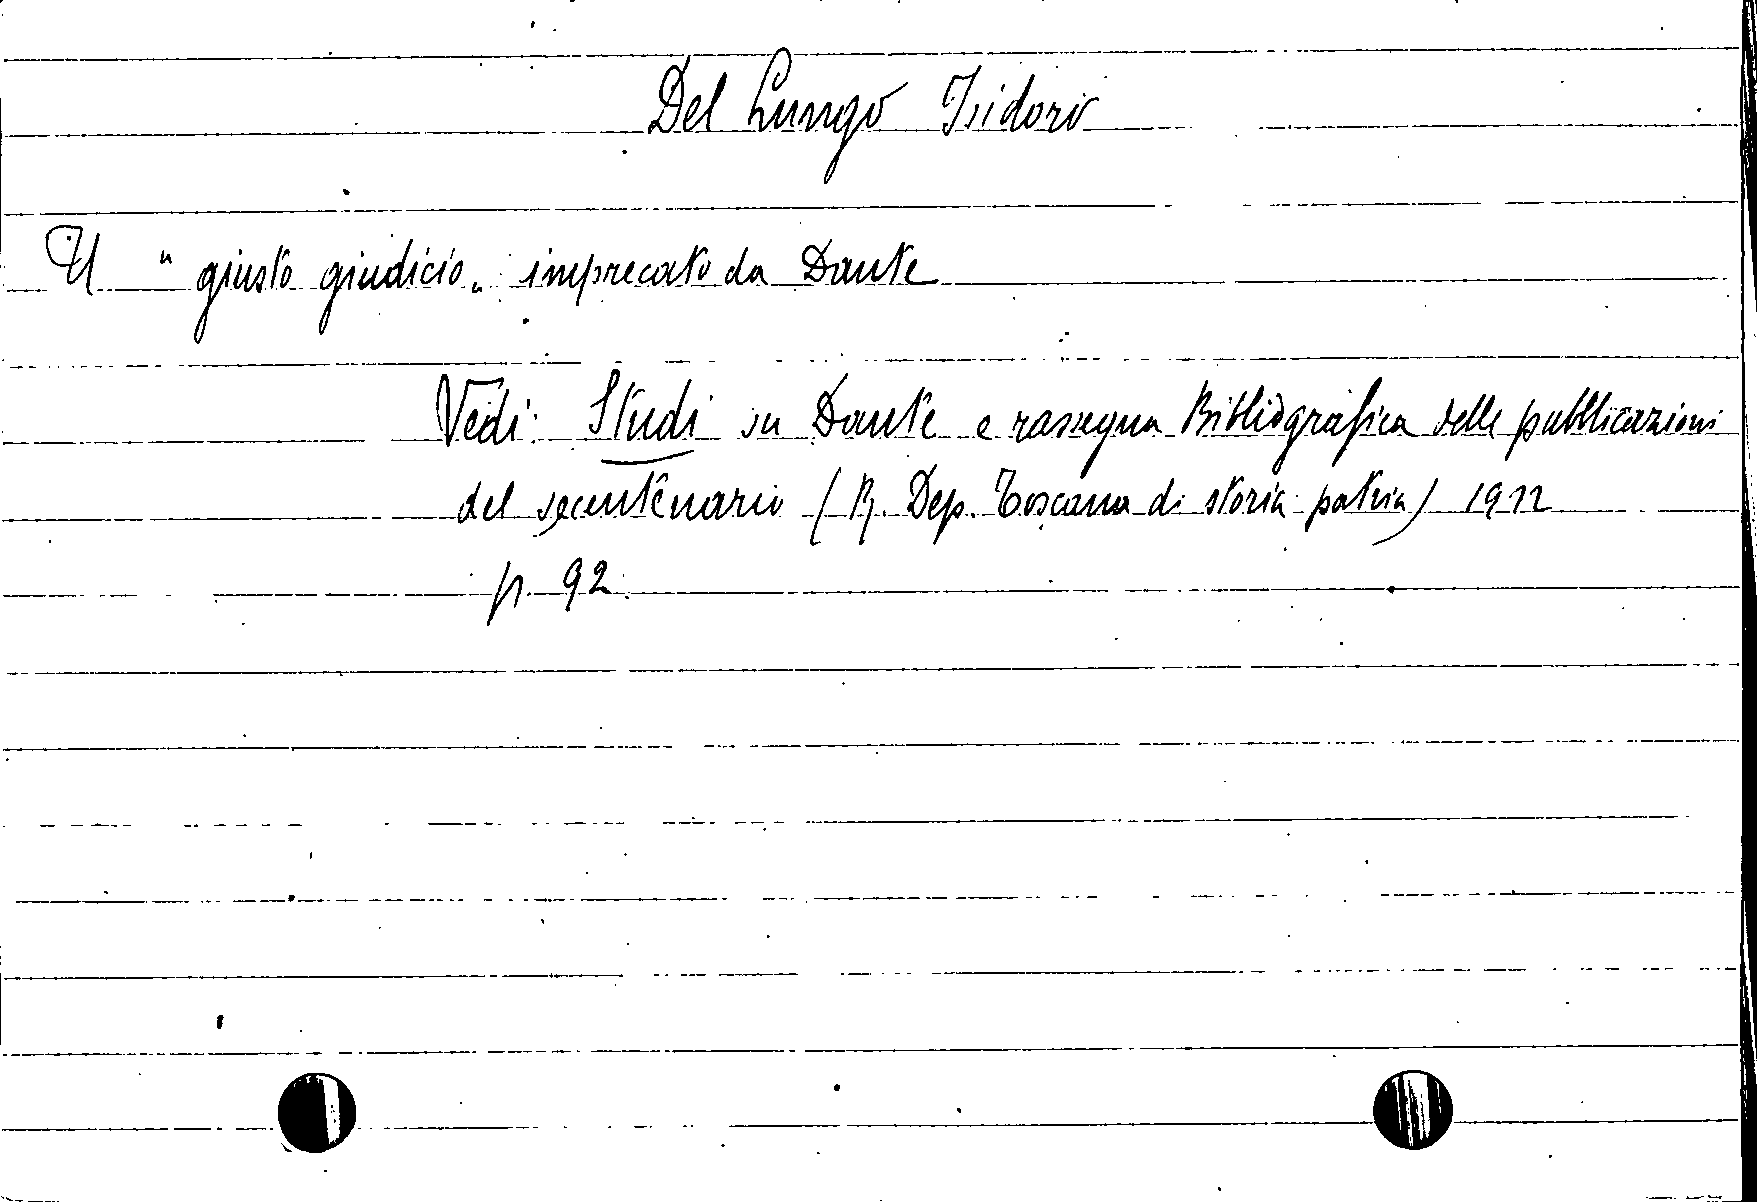 Del Lungo Isidoro
Il "giusto giudicio" imprecato da Dante
Vedi: Studi su Dante e rassegna Bibliografica delle pubblicazioni
del secentenario (R. Dep. Toscana di storia patria) 1922
p. 92.